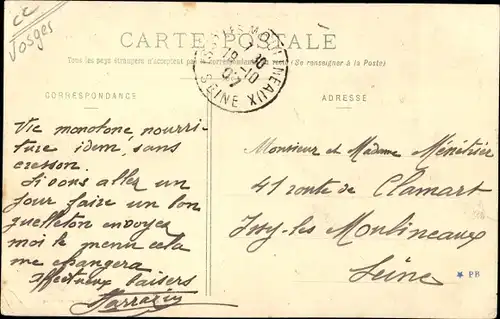 cc
Vosges
CARTE POSTALE
Tous les pays étrangers n'acceptent pas la correspondance au recto (Se renseigner à la Poste)
MOULINEAUX
SEINE
CORRESPONDANCE
ADRESSE
Vie monotone, nourri-
ture idem, sans
cresson.
Si vous allez un
jour faire un bon
gueuleton envoyez
moi le menu cela
me changera
Affectueux baisers
Sarrazin
Monsieur et Madame Ménétrier
41 route de Clamart
Issy-les Moulineaux
Seine
PB